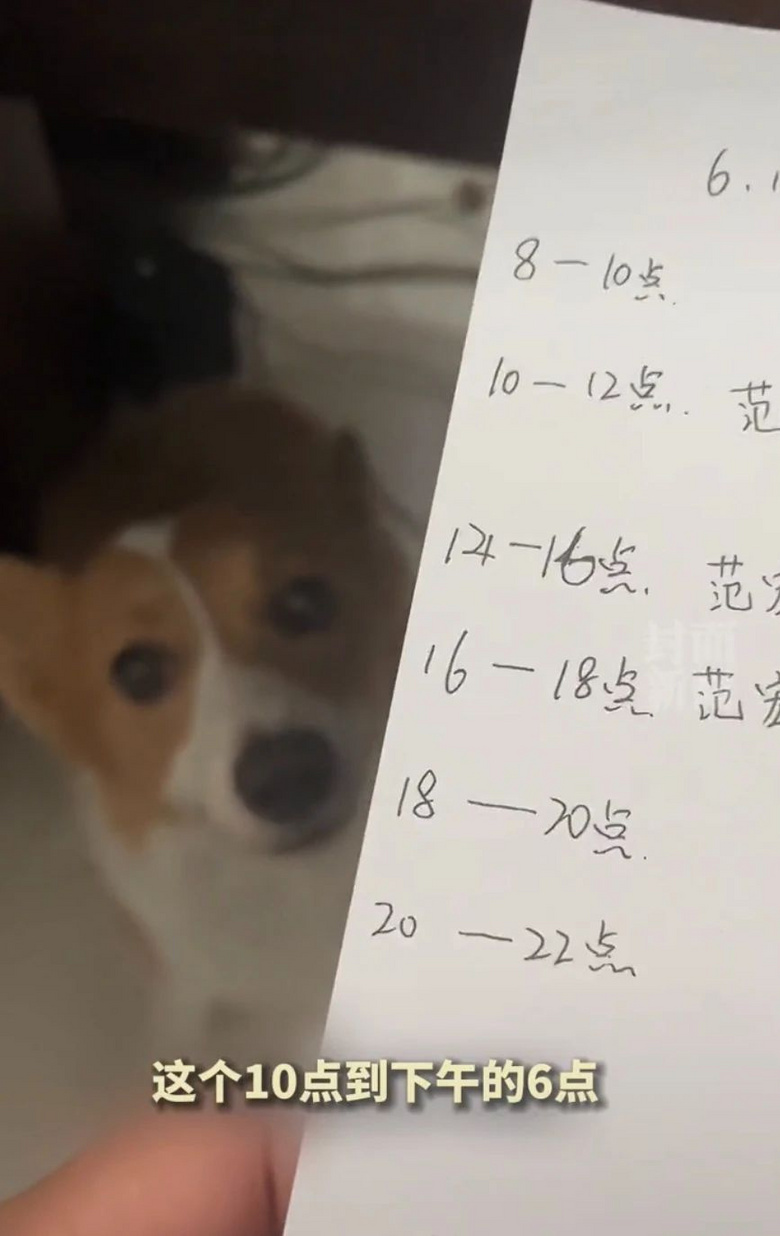 6.
8－10点.
10－12点. 范
14－16点. 范
16－18点. 范
18－20点.
20－22点
这个10点到下午的6点